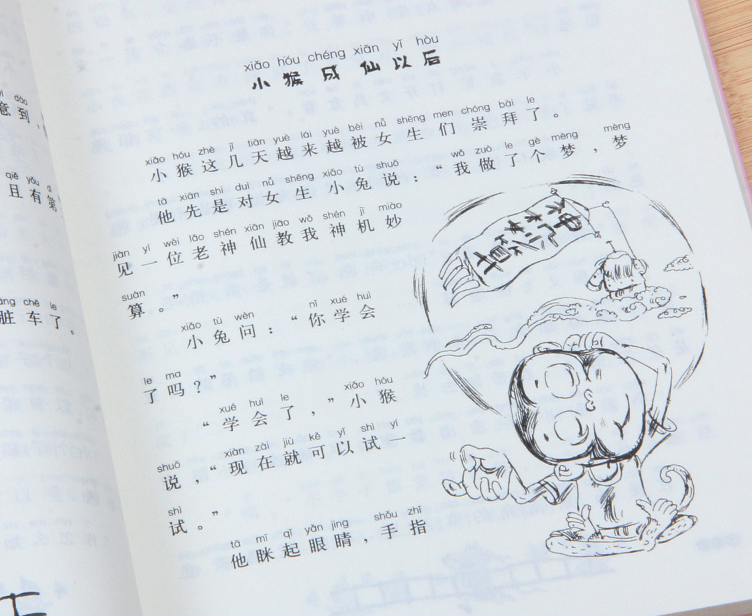 意到,
且有笔
脏车了。
xiǎo hóu chéng xiān yǐ hòu
小猴成仙以后
xiǎo hóu zhè jǐ tiān yuè lái yuè bèi nǚ shēng men chóng bài le
小猴这几天越来越被女生们崇拜了。
tā xiān shì duì nǚ shēng xiǎo tù shuō wǒ zuò le gè mèng mèng
他先是对女生小兔说：“我做了个梦，梦
jiàn yí wèi lǎo shén xiān jiāo wǒ shén jī miào
见一位老神仙教我神机妙
suàn
算。”
xiǎo tù wèn nǐ xué huì
小兔问：“你学会
le ma
了吗？”
xué huì le xiǎo hóu
“学会了，”小猴
shuō xiàn zài jiù kě yǐ shì yí
说，“现在就可以试一
shì
试。”
tā mī qǐ yǎn jing shǒu zhǐ
他眯起眼睛，手指
神机妙算